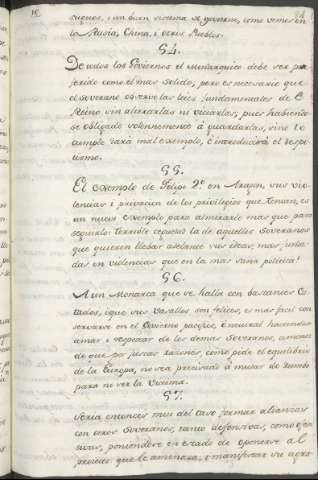 sugnos, i un buen sistema de govierno, como vemos en
la Rusia, China, i otros Pueblos.
§4.
De todos los Goviernos el Monarquico debe ser pre-
ferido como el mas solido; pero es necesario que
el soverano observe las leies fundamentales de el
Reino sin alterarlas ni viciarlas, pues habiendo-
se obligado solemnemente á guardarlas, si no lo
cumple dará mal exemplo, é introducirá el despo-
tismo.
§5.
El exemplo de Felipe 2º en Aragon, sus vio-
lencias i privacion de los privilegios que tenian, es
un nuevo exemplo para admirarle mas que para
seguirlo: terrible es la de aquellos soveranos
que quieren llebar adelante sus ideas, mas funda-
das en violencias que en la mas sana politica!
§6.
A un Monarca que se halla con bastantes Es-
tados, i que sus Vasallos son felices, es mas facil con-
servarse en el Govierno pacifico, é neutral haciendose
amar i respetar de los demas Soveranos, amenos
de que por justas razones, como pide el equilibrio
de la Europa, no sea precisado á mudar de rumbo
para no ser la Victima.
§7.
Seria entonces mui del caso formar alianzas
con otros Soveranos, tanto defensivas, como ofen-
sivas, poniendose en estado de oponerse al
que le amenaza, é manifestar su agra-